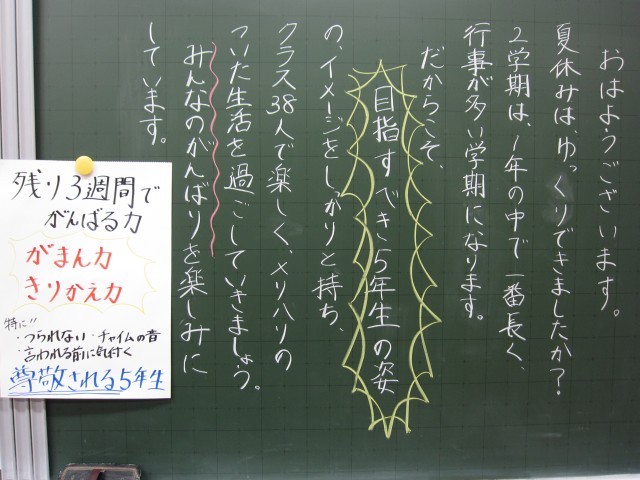 おはようございます。
夏休みは、ゆっくりできましたか?
2学期は、1年の中で一番長く、
行事が多い学期になります。
だからこそ、
目指すべき5年生の姿
の、イメージをしっかりと持ち、
クラス38人で楽しく、メリハリの
ついた生活を過ごしていきましょう。
みんなのがんばりを楽しみに
しています。
残り3週間で
がんばる力
がまん力
きりかえ力
特に!!
・つられない ・チャイムの音
・言われる前に気付く
尊敬される5年生